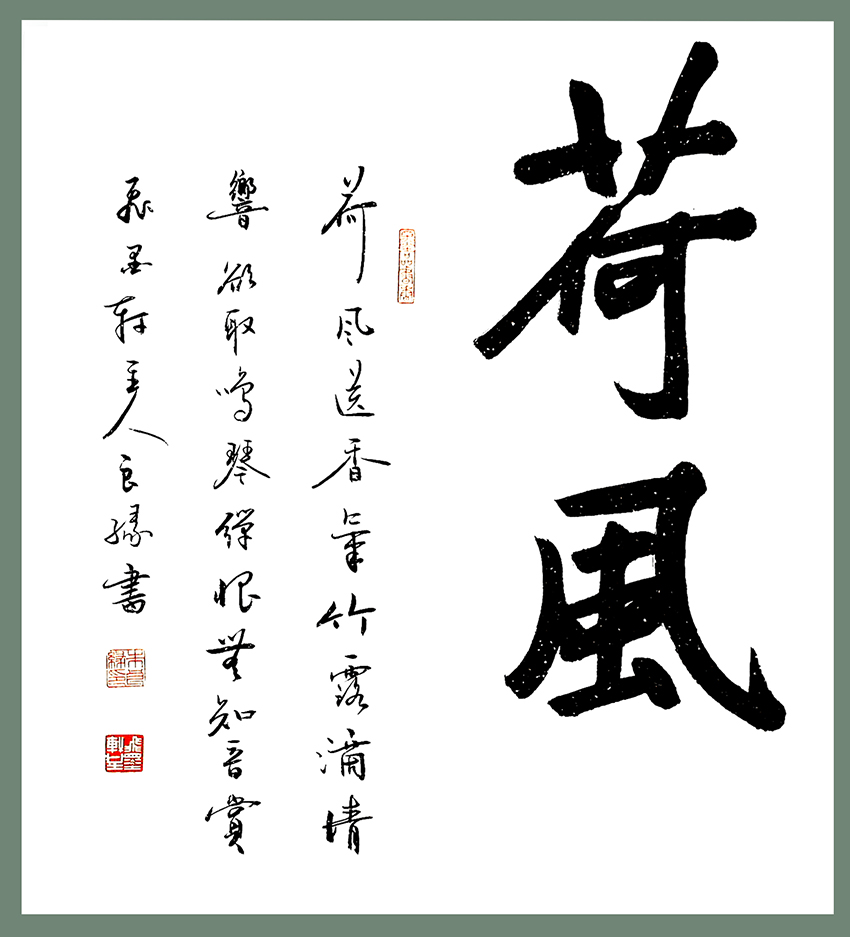 荷風
荷风送香氣竹露滴清
響欲取鳴琴彈恨無知音賞
飛墨軒主人良緣書